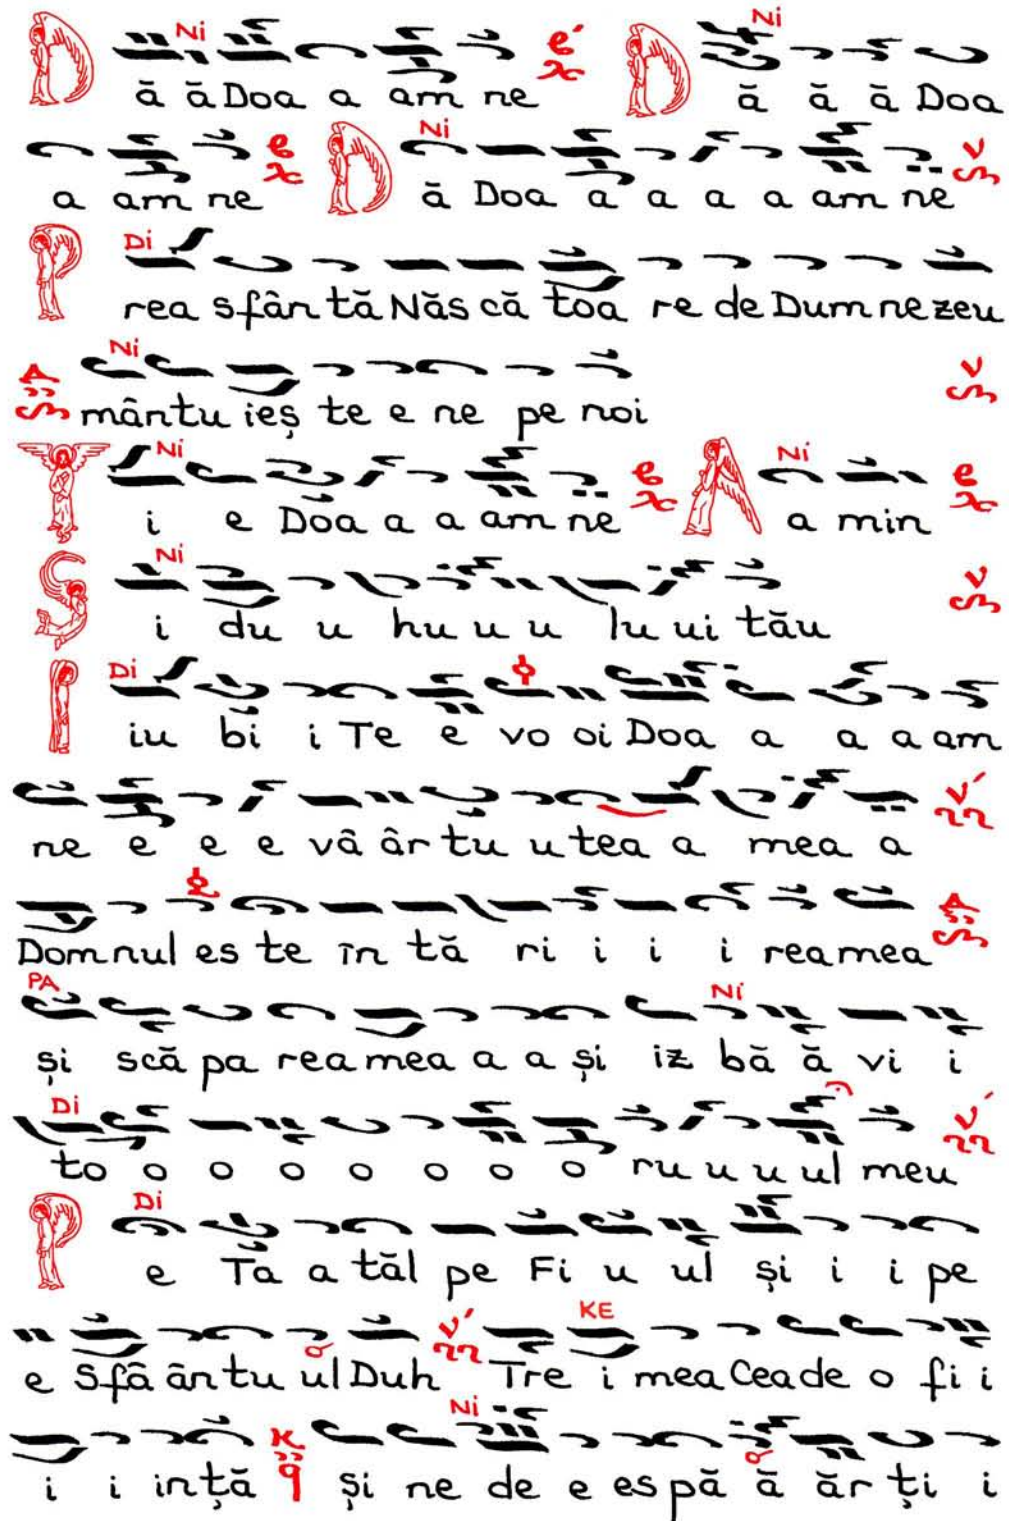 D ă ă Doa a am ne D ă ă ă Doa
a am ne D ă Doa a a a a am ne
P rea sfân tă Năs că toa re de Dum ne zeu
mântu ieș te e ne pe noi
T i e Doa a a am ne A a min
S i du u hu u u lu ui tău
I iu bi i Te e vo oi Doa a a a am
ne e e e vâ âr tu u tea a mea a
Domnul es te în tă ri i i i rea mea
și scă pa rea mea a a și iz bă ă vi i
to o o o o o o o ru u u ul meu
P e Ta a tăl pe Fi u ul și i i pe
e Sfâ ân tu ul Duh Tre i mea Cea de o fi i
i i in ță și ne de e es pă ă ăr ți i